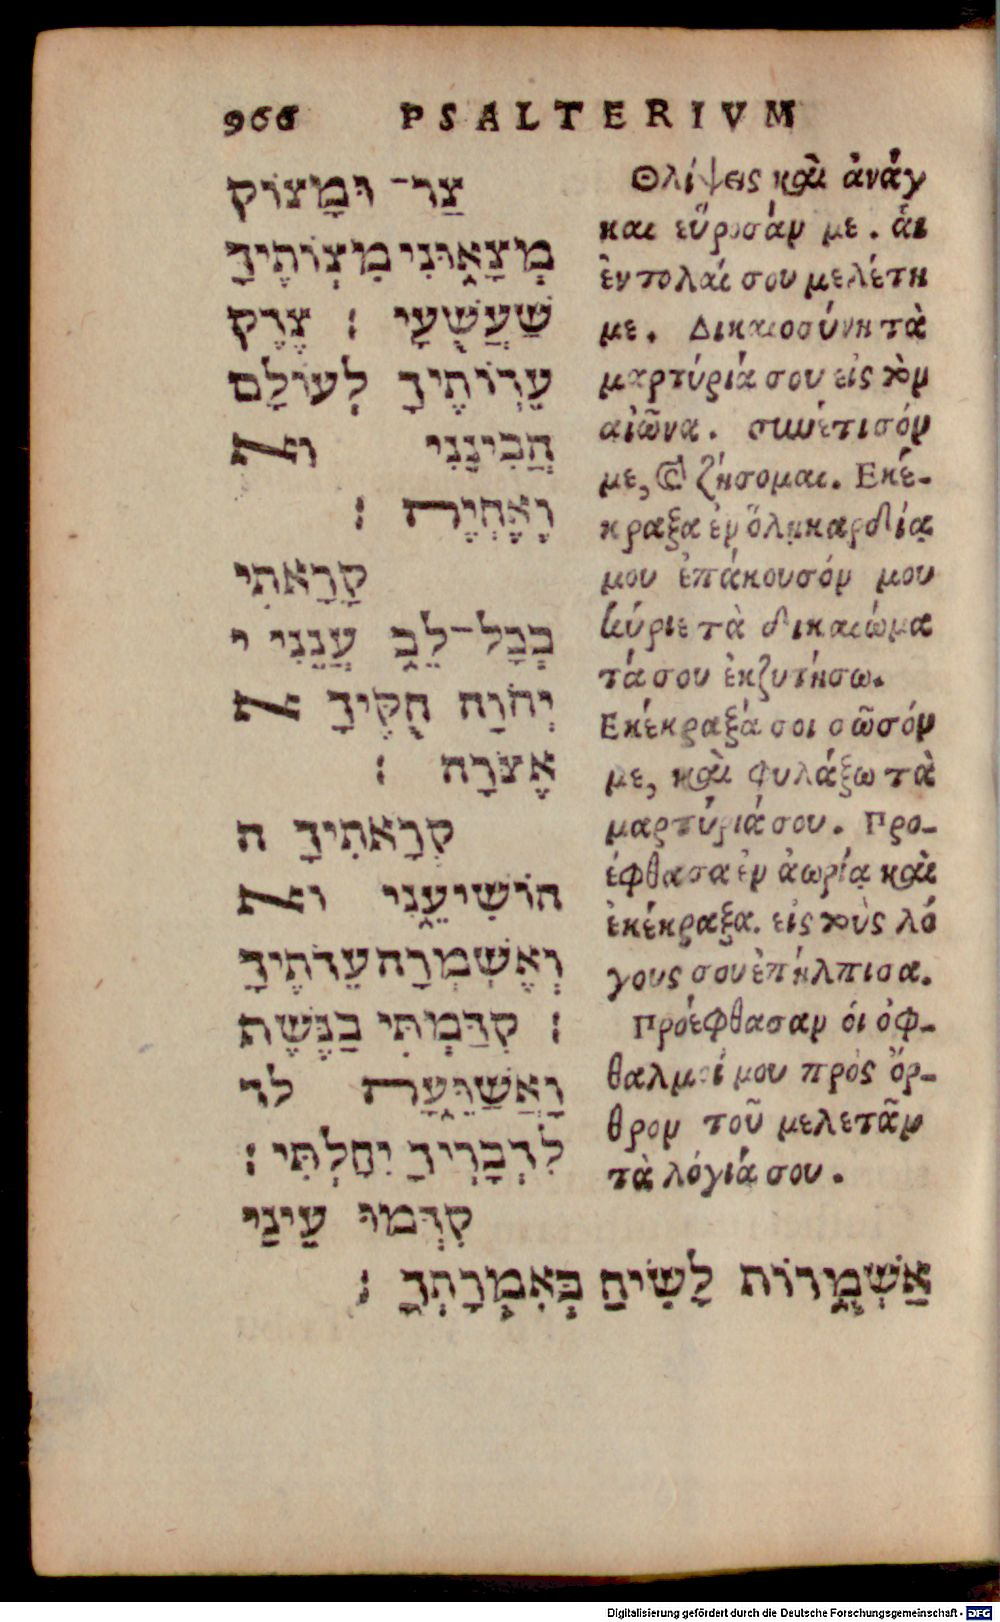 966 PSALTERIVM
צַר־ וּמָצוֹק
מְצָאוּנִי מִצְוֹתֶיךָ
שַׁעֲשֻׁעָי : צֶדֶק
עֵדְוֹתֶיךָ לְעוֹלָם
הֲבִינֵנִי וא
וְאֶחְיֶה :
קָרָאתִי
בְכָל־לֵב עֲנֵנִי י
יְהֹוָה חֻקֶּיךָ א
אֶצֹּרָה :
קְרָאתִיךָ ה
הוֹשִׁיעֵנִי וא
וְאֶשְׁמְרָה עֵדֹתֶיךָ
: קִדַּמְתִּי בַנֶּשֶׁף
וָאֲשַׁוֵּעָה לד
לִדְבָרֶיךָ יִחָלְתִּי :
קִדְּמוּ עֵינַי
אַשְׁמֻרוֹת לָשִׂיחַ בְּאִמְרָתֶךָ :
Θλίψεις καὶ ἀνάγ
και εὕροσάν με. ἁι
ἐντολαί σου μελέτη
με. Δικαιοσύνη τὰ
μαρτύριά σου εἰς τὸν
αἰῶνα. συνέτισόν
με, & ζήσομαι. Εκέ-
κραξα ἐν ὅλῃ καρδίᾳ
μου ἐπάκουσόν μου
κύριε τὰ δικαιώμα
τά σου ἐκζυτήσω.
Εκέκραξά σοι σῶσόν
με, καὶ φυλάξω τὰ
μαρτύριά σου. Προ-
έφθασα ἐν ἀωρίᾳ καὶ
ἐκέκραξα. εἰς τοὺς λό
γους σου ἐπήλπισα.
Προέφθασαν ὁι ὀφ-
θαλμοί μου πρὸς ὄρ-
θρον τοῦ μελετᾶν
τὰ λόγιά σου.
Digitalisierung gefördert durch die Deutsche Forschungsgemeinschaft - DFG